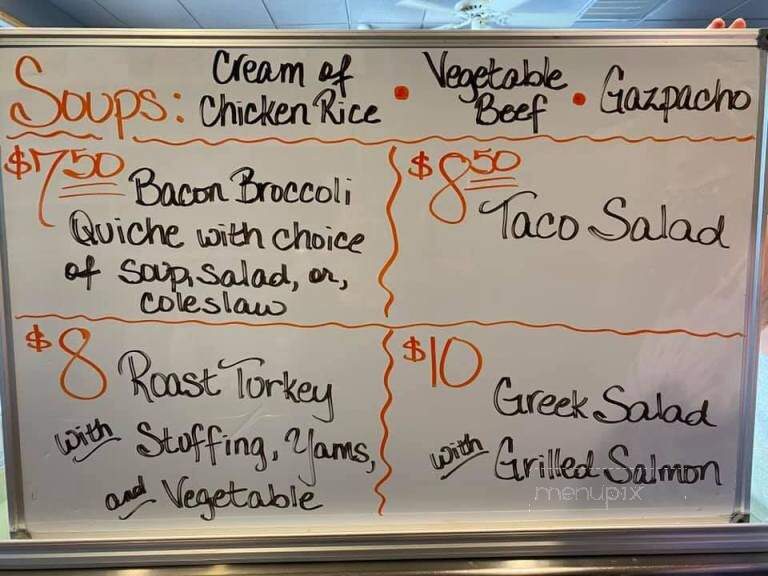 Soups: Cream of
Chicken Rice • Vegetable
Beef • Gazpacho
$7.50 Bacon Broccoli
Quiche with choice
of soup, salad, or,
coleslaw
$8.50
Taco Salad
$8 Roast Turkey
with Stuffing, Yams,
and Vegetable
$10
Greek Salad
with Grilled Salmon
menupix